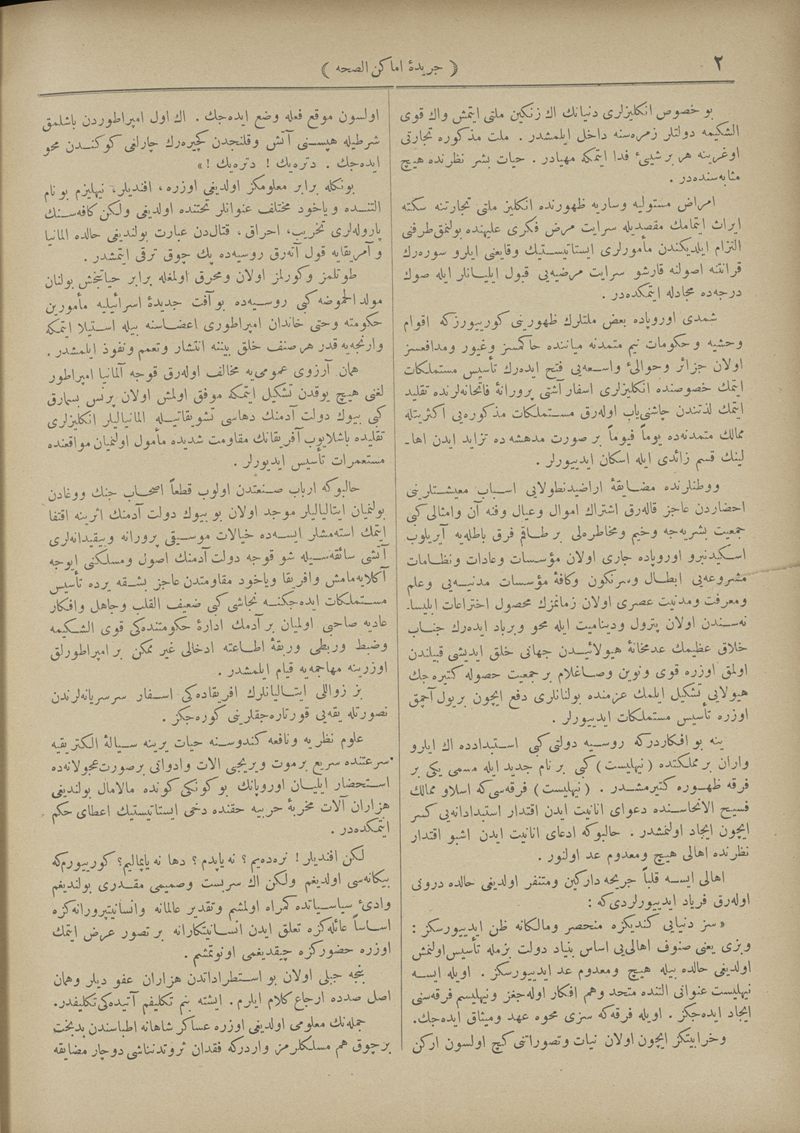 ﴿ جريدهٔ اماكن الصحه ﴾
٢
بو خصوص انكليزلری دنيانك اك زنكين ملتی ايتمش واك قوی
الشكيمه دولتلر زمره‌سنه داخل ايلمشدر . ملت مذكوره تجارتی
اوغرينه هر برشيئی فدا ايتمكه مهيادر . حيات بشر نظرنده هيچ
مثابه‌سنده‌در .
امراض مستوليه وساريه ظهورنده انكليز ملتی تجارتنه سكته
ايراث ايتمامك مقصديله سرايت مرض فكری عليهنده بولنمق طرفنی
التزام ايلديكندن مأمورلری ايستاتيستيك وقايعنی ايلرو سوره‌رك
قرانتنه اصولنه قارشو سرايت مرضيه‌يی قبول ايليانلر ايله صوك
درجه‌ده مجادله ايتمكده‌در .
شمدی اوروپاده بعض ملتلرك ظهورينی كوريیورز كه اقوام
وحشيه و حكومات نيم متمدنه مياننده حاكمسز وغيور ومدافعسز
اولان جزائر وحوالیٔ واسعه‌يی فتح ايده‌رك تأسيس مستملكات
ايتمك خصوصنده انكليزلری اسفار آشتی پرورانهٔ فاتحانه‌لرنده تقليد
ايتمك لذتندن چاشنی‌ياب اوله‌رق مستملكات مذكوره‌يی اكثريتله
ممالك متمدنه‌ده يوماً فيوماً بر صورت مدهشه ده تزايد ايدن اها-
لينك قسم زائدی ايله اسكان ايديیورلر .
ووطنلرنده مضايقهٔ اراضيدنطولايی اسباب معيشتلرينی
احضاردن عاجز قاله‌رق اشتراك اموال وعيال وفنه آن وامثالی كبی
جمعيت بشريه‌جه وخيم ومخاطره‌لی بر طاقم فرق باطله‌يه آيريلوب
اسكيدنبرو اوروپاده جاری اولان مؤسسات وعادات ونظامات
مشروعه‌يی ابطال وسرنكون وكافهٔ مؤسسات مدنيه‌يی وعلم
ومعرفت ومدنيت عصری اولان زمانمزك محصول اختراعات ابليسا-
نه‌سندن اولان پترول وديناميت ايله محو وبرباد ايده‌رك جناب
خلاق عظيمك عدمخانهٔ هيولائيدن جهانی خلق ايديشی قبيلندن
اولمق اوزره قوی ونوين وصاغلام بر جمعيت حصوله كتيره‌جك
هيولايی تشكيل ايلمك عزمنده بولنانلری دفع ايچون بريول آچمق
اوزره تأسيس مستملكات ايديیورلر .
ينه بو افكاردر كه روسيه دولتی كبی استبدادده اك ايلرو
واران بر مملكتده ( نيهليست ) كبی بر نام جديد ايله مسمی يكی بر
فرقه ظهوره كتيرمشدر . ( نيهليست ) فرقه‌سی كه اسلاو ممالك
فسيح الانحاسنده دعوای انانيت ايدن اقتدار استبدادانه‌يی كسر
ايچون ايجاد اولنمشدر . حالبوكه ادعای انانيت ايدن اشبو اقتدار
نظرنده اهالی هيچ ومعدوم عد اولنور .
اهالی ايسه قلباً جريحه داركين ومتنفر اولديغی حالده درونی
اوله‌رق فرياد ايديیورلردی كه :
« سز دنيايی كنديكزه منحصر ومالكانه ظن ايديیورسكز :
وبزی يعنی صنوف اهالی‌يی اساس بنياد دولت بزمله تأسيس اولنمش
اولديغی حالده بيله هيچ ومعدوم عد ايديیورسكز . اويله ايسه
نيهليست عنوانی التنده متحد وهم افكار اوله‌جغز ونيهليسم فرقه‌سنی
ايجاد ايده‌جكز . اويله فرقه كه سزی محوه عهد وميثاق ايده‌جك.
وخرابيتكز ايچون اولان نيات وتصوراتنی كچ اولسون اركن
اولسون موقع فعله وضع ايده‌جك . اك اول امپراطوردن باشلمق
شرطيله هپسنی آتش وقلنجدن كچيره‌رك چارلغی كوكندن محو
ايده‌جك . دتره‌يك ! دتره‌يك ! »
بونكله برابر معلومكز اولديغی اوزره، افنديلر، نيهليزم بو نام
التنده و ياخود مختلف عنوانلر تحتنده اولديغی ولكن كافه‌سنك
پاروله‌لری تخريب، احراق، قتالدن عبارت بولنديغی حالده المانيا
و آمريقايه قول آته‌رق روسيه‌ده پك چوق ترقی ايتمشدر .
طوتلمز وكورلمز اولان ومحرق اولمغله برابر حياتبخش بولنان
مولد الحموضه كبی روسيه‌ده بو آفت جديدهٔ اسرائيليه مأمورين
حكومته وحتی خاندان امپراطوری اعضاسنه بيله استيلا ايتمكه
وارنجه‌يه قدر هر صنف خلق بيننه انتشار وتعمم ونفوذ ايلمشدر .
همان آرزوی عمومی‌يه مخالف اوله‌رق قوجه آلمانيا امپراطور
لغنی هيچ يوقدن تشكيل ايتمكه موفق اولمش اولان پرنس بسمارق
كبی بيوك دولت آدمنك دهاسی تشويقاتيله المانياليلر انكليزلری
تقليده باشلايوب آفريقانك مقاومت شديده مأمول اولنميان مواقعنده
مستعمرات تأسيس ايديورلر .
حالبوكه ارباب صنعتدن اولوب قطعاً اصحاب جنك ووغادن
بولنميان ايتاليالیلر موجد اولان بو بيوك دولت آدمنك اثرينه اقتفا
ايتمك استه‌مشلر ايسه‌ده خيالات موسيقی پرورانه وبيقيدانه‌لری
آتشی سائقه‌سيله شو قوجه دولت آدمنك اصول ومسلكنی ايوجه
آكلايه‌مامش وافريقا وياخود مقاومتدن عاجز بشقه يرده تأسيس
مستملكات ايده‌جكنه نجاشی كبی ضعيف القلب وجاهل وافكار
عاديه صاحبی اولميان بر آدمك ادارهٔ حكومتنده كی قوی الشكيمه
وضبط وربطی وربقهٔ اطاعته ادخالی غير ممكن بر امپراطورلق
اوزرينه مهاجمه‌يه قيام ايلمشدر .
بز زوالی ايتاليانلرك افريقاده كی اسفار سرسريانه‌لرندن
نصورتله يقه‌يی قورتاره‌جقلرينی كوره‌جكز .
علوم نظريه و نافعه كندوسنه حيات يرينه سيالهٔ الكتريقيه
سرعتنده سريع برموت ويريجی الات وادواتی برصورت عجولانه‌ده
استحضار ايليان اوروپانك بو كونكی كونده مالامال بولنديغی
هزاران آلات مخربهٔ حربيه حقنده دخی ايستاتيستيك اعطای حكم
ايتمكده‌در .
لكن افنديلر ! نره‌ده‌يم ؟ نه ياپدم ؟ دها نه ياپماليم ؟ كوريیورم كه
بيكانه‌سی اولديغم ولكن اك سربست وصميمی مقدری بولنديغم
وادیٔ سياسياتده كمراه اولمشم وتقدير عالمانه وانسانيتپرورانه‌كزه
اساساً عائله‌كزه تعلق ايدن انسانيتكارانه بر تصور عرض ايتمك
اوزره حضوركزه چيقديغمی اونوتمشم .
بنجه جبلی اولان بو استطراداتدن هزاران عفو ديلر وهمان
اصل صدده ارجاع كلام ايلرم . ايشته بنم تكليفم آتيده كی تكليفدر .
جمله‌نك معلومی اولديغی اوزره عساكر شاهانه اطباسندن بدبخت
برچوق هم مسلكلرمز واردر كه فقدان ثروتدنناشی دوچار مضايقه